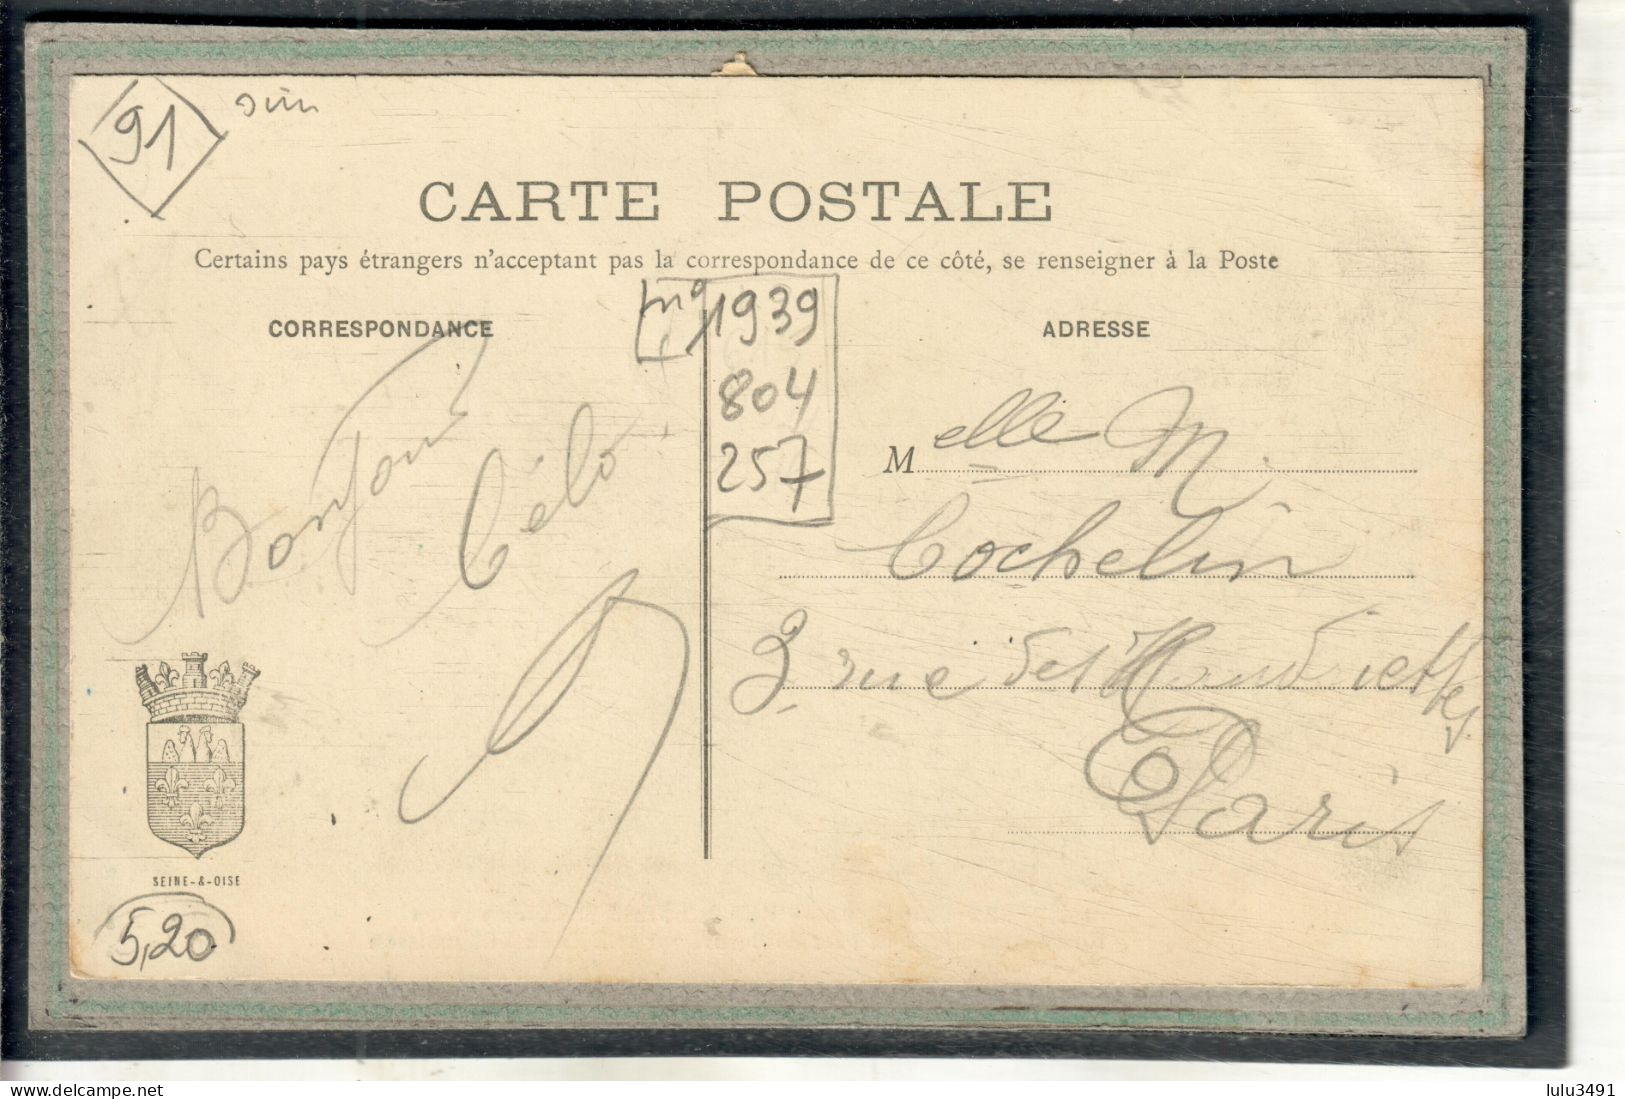 91
CARTE POSTALE
Certains pays étrangers n'acceptant pas la correspondance de ce côté, se renseigner à la Poste
CORRESPONDANCE
Bonjour
Célo
SEINE-&-OISE
5,20
n° 1939
804
257
ADRESSE
Melle M.
Cochelin
3 rue des Haudriettes
Paris
lulu3491